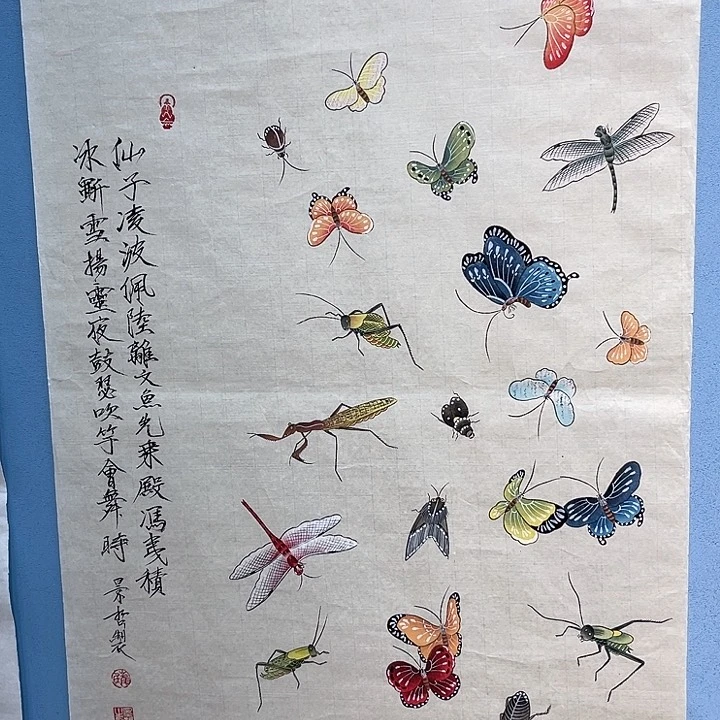 仙子凌波佩陸離文魚先乘殿馮夷積
冰斲雪揚靈夜鼓瑟吹竽會舞時
景哲製